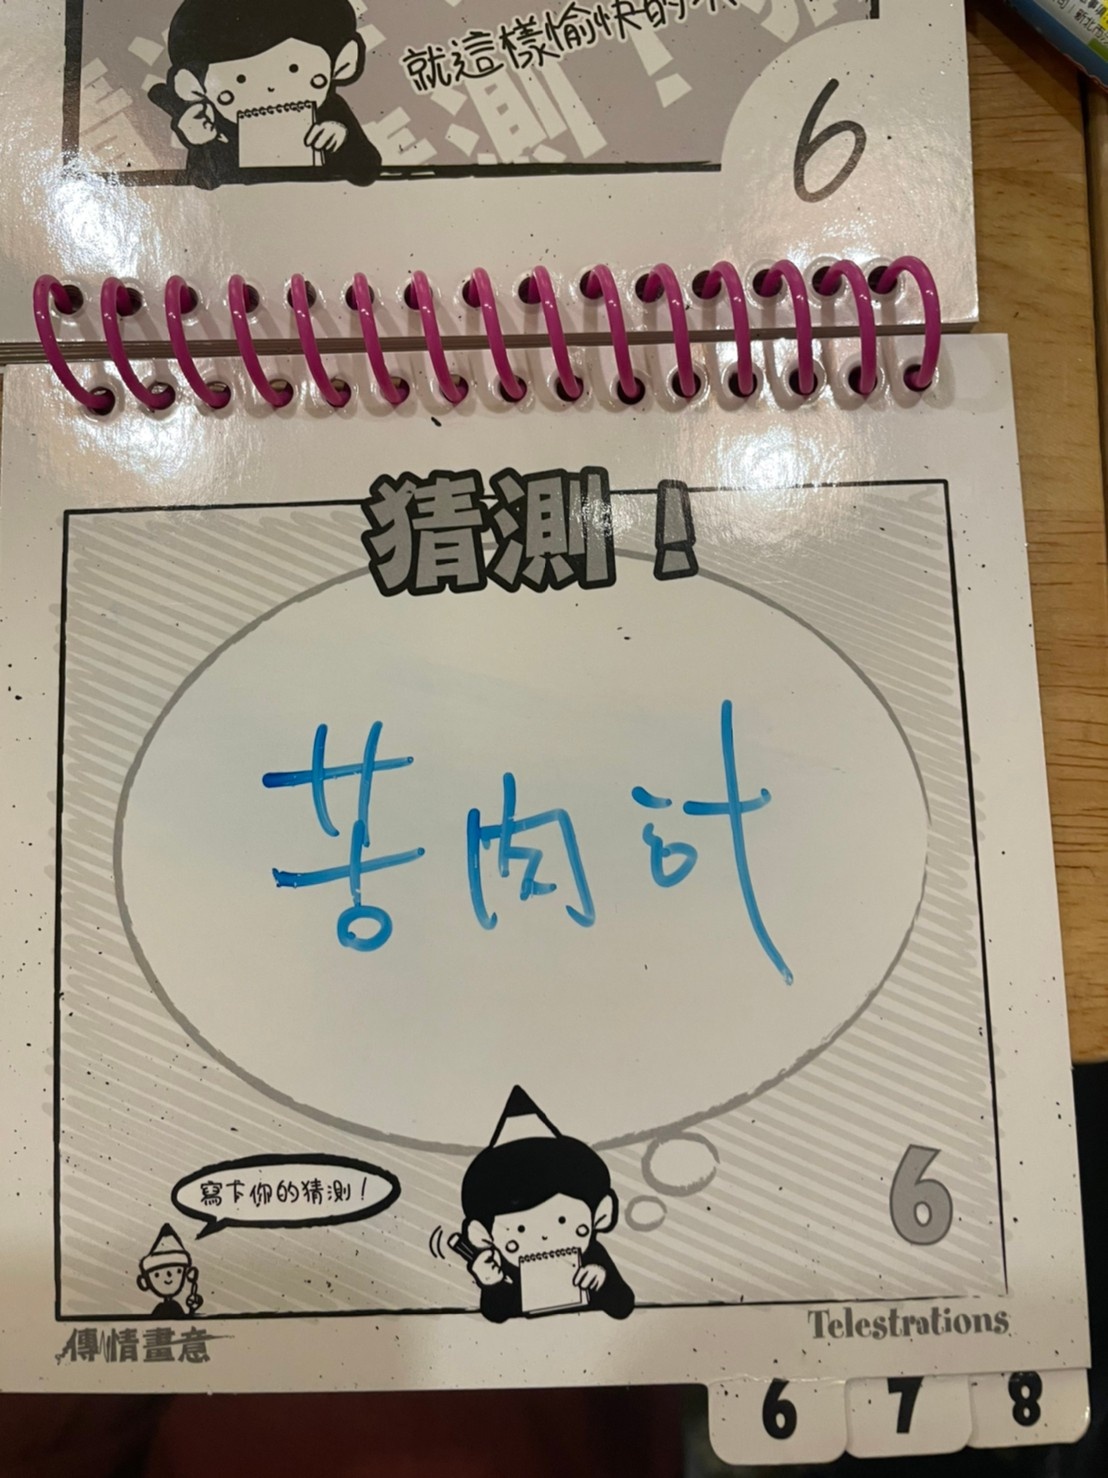 就這樣愉快的
測!
6
猜測!
苦肉計
寫下你的猜測!
6
傳情畫意
Telestrations
6 7 8